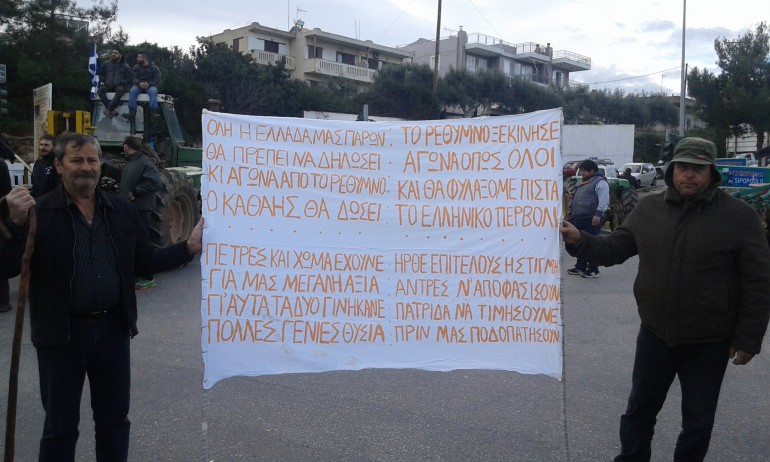 ΟΛΗ Η ΕΛΛΑΔΑ ΜΑΣ ΠΑΡΩΝ. ΤΟ ΡΕΘΥΜΝΟ ΞΕΚΙΝΗΣΕ
ΘΑ ΠΡΕΠΕΙ ΝΑ ΔΗΛΩΣΕΙ. ΑΓΩΝΑ ΟΠΩΣ ΟΛΟΙ
ΚΙ ΑΓΩΝΑ ΑΠΟ ΤΟ ΡΕΘΥΜΝΟ. ΚΑΙ ΘΑ ΦΥΛΑΞΟΜΕ ΠΙΣΤΑ
Ο ΚΑΘΑΗΣ ΘΑ ΔΩΣΕΙ. ΤΟ ΕΛΛΗΝΙΚΟ ΠΕΡΒΟΛΙ
ΠΕΤΡΕΣ ΚΑΙ ΧΩΜΑ ΕΧΟΥΝΕ. ΗΡΘΕ ΕΠΙΤΕΛΟΥΣ Η ΣΤΙΓΜΗ
ΓΙΑ ΜΑΣ ΜΕΓΑΛΗ ΑΞΙΑ. ΑΝΤΡΕΣ Ν' ΑΠΟΦΑΣΙΣΟΥΝ
ΓΙ' ΑΥΤΑ ΤΑ ΔΥΟ ΓΙΝΗΚΑΝΕ. ΠΑΤΡΙΔΑ ΝΑ ΤΙΜΗΣΟΥΝΕ
ΠΟΛΛΕΣ ΓΕΝΙΕΣ ΘΥΣΙΑ. ΠΡΙΝ ΜΑΣ ΠΟΔΟΠΑΤΗΣΟΥΝ